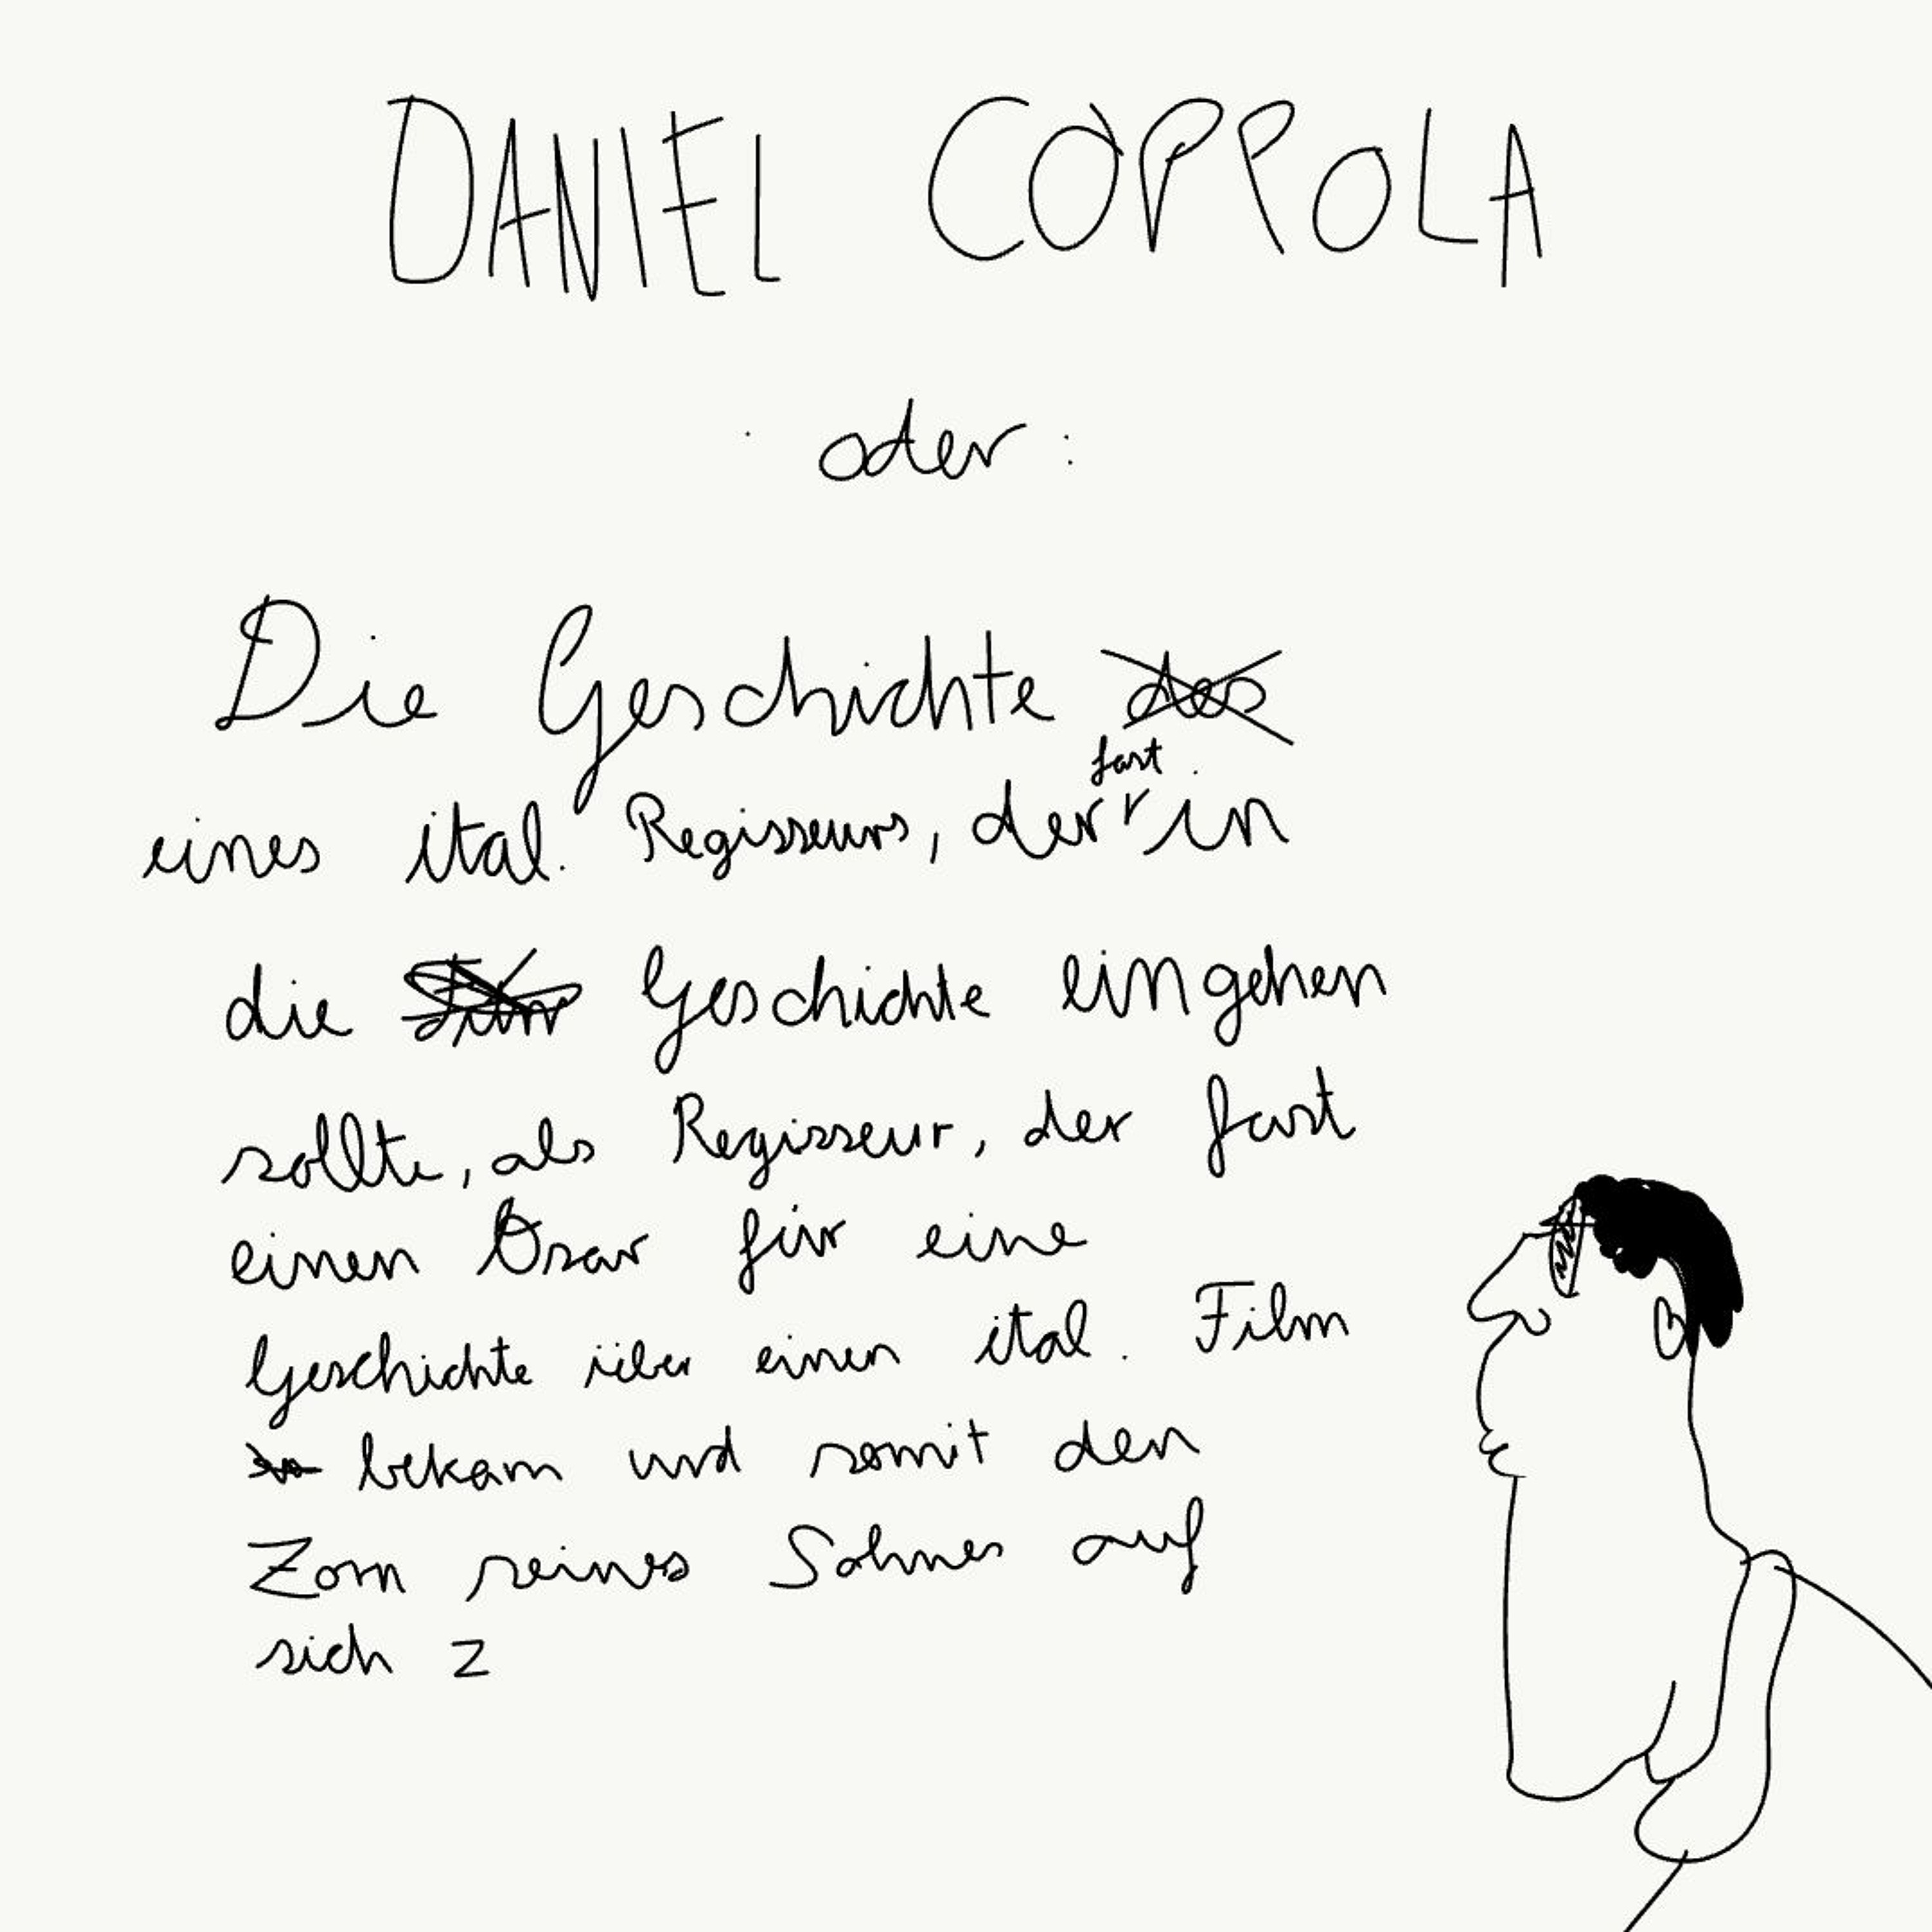 DANIEL COPPOLA
oder:
Die Geschichte des
fast
eines ital. Regisseurs, der in
die Geschichte eingehen
sollte, als Regisseur, der fast
einen für eine
Geschichte über einen ital. Film
bekam und somit den
Zorn seines Sohnes auf
sich z